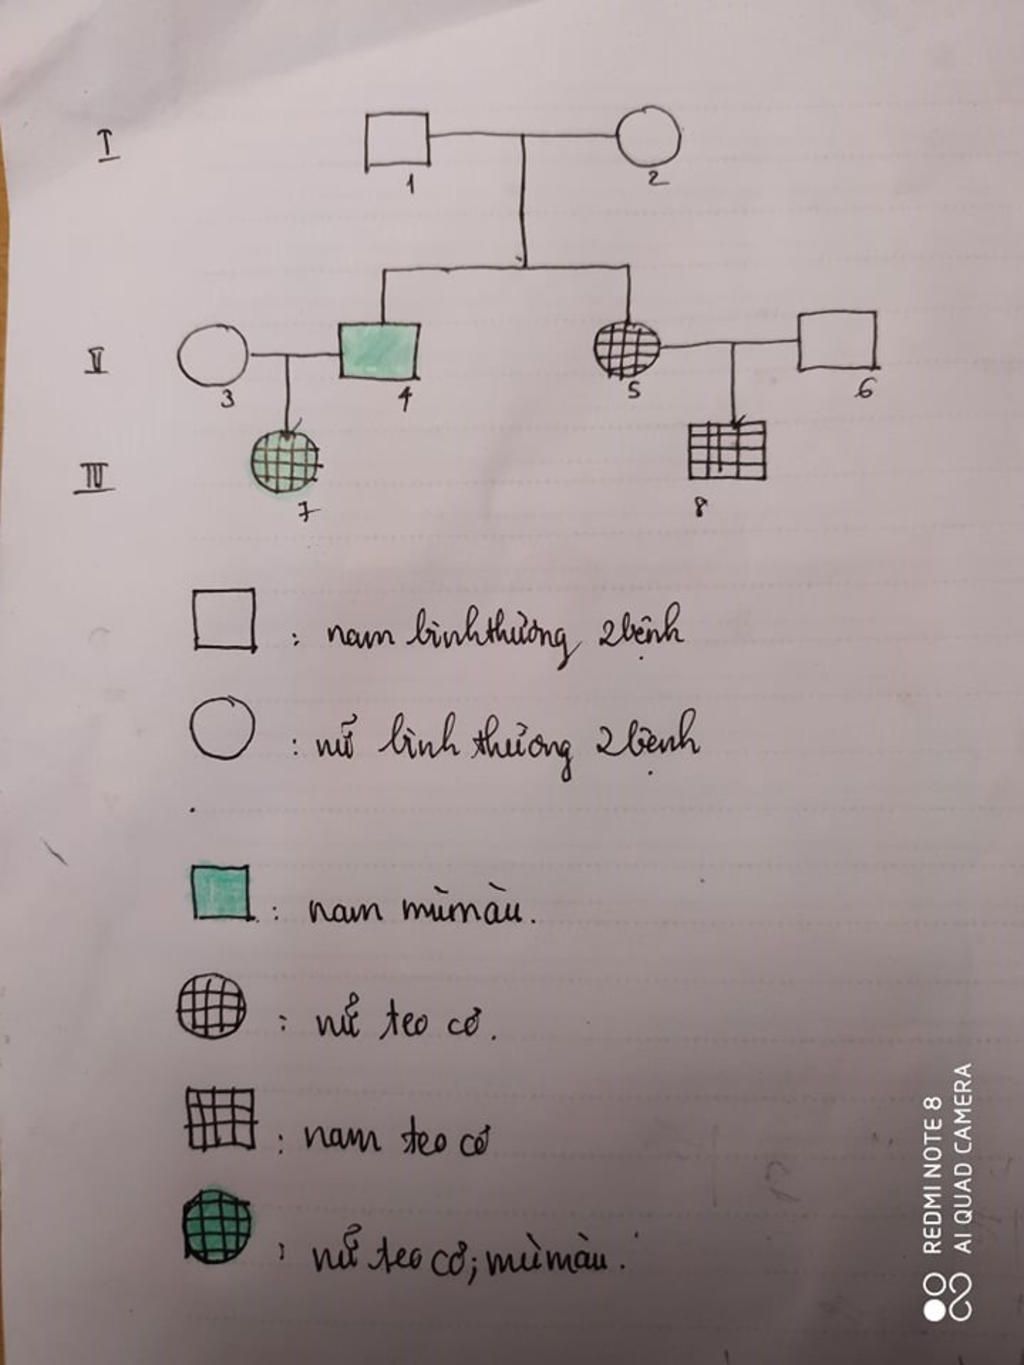 I
1
2
II
3
4
5
6
III
7
8
: nam bình thường 2 bệnh
: nữ bình thường 2 bệnh
: nam mù màu.
: nữ teo cơ.
: nam teo cơ
: nữ teo cơ; mù màu.
REDMI NOTE 8
AI QUAD CAMERA